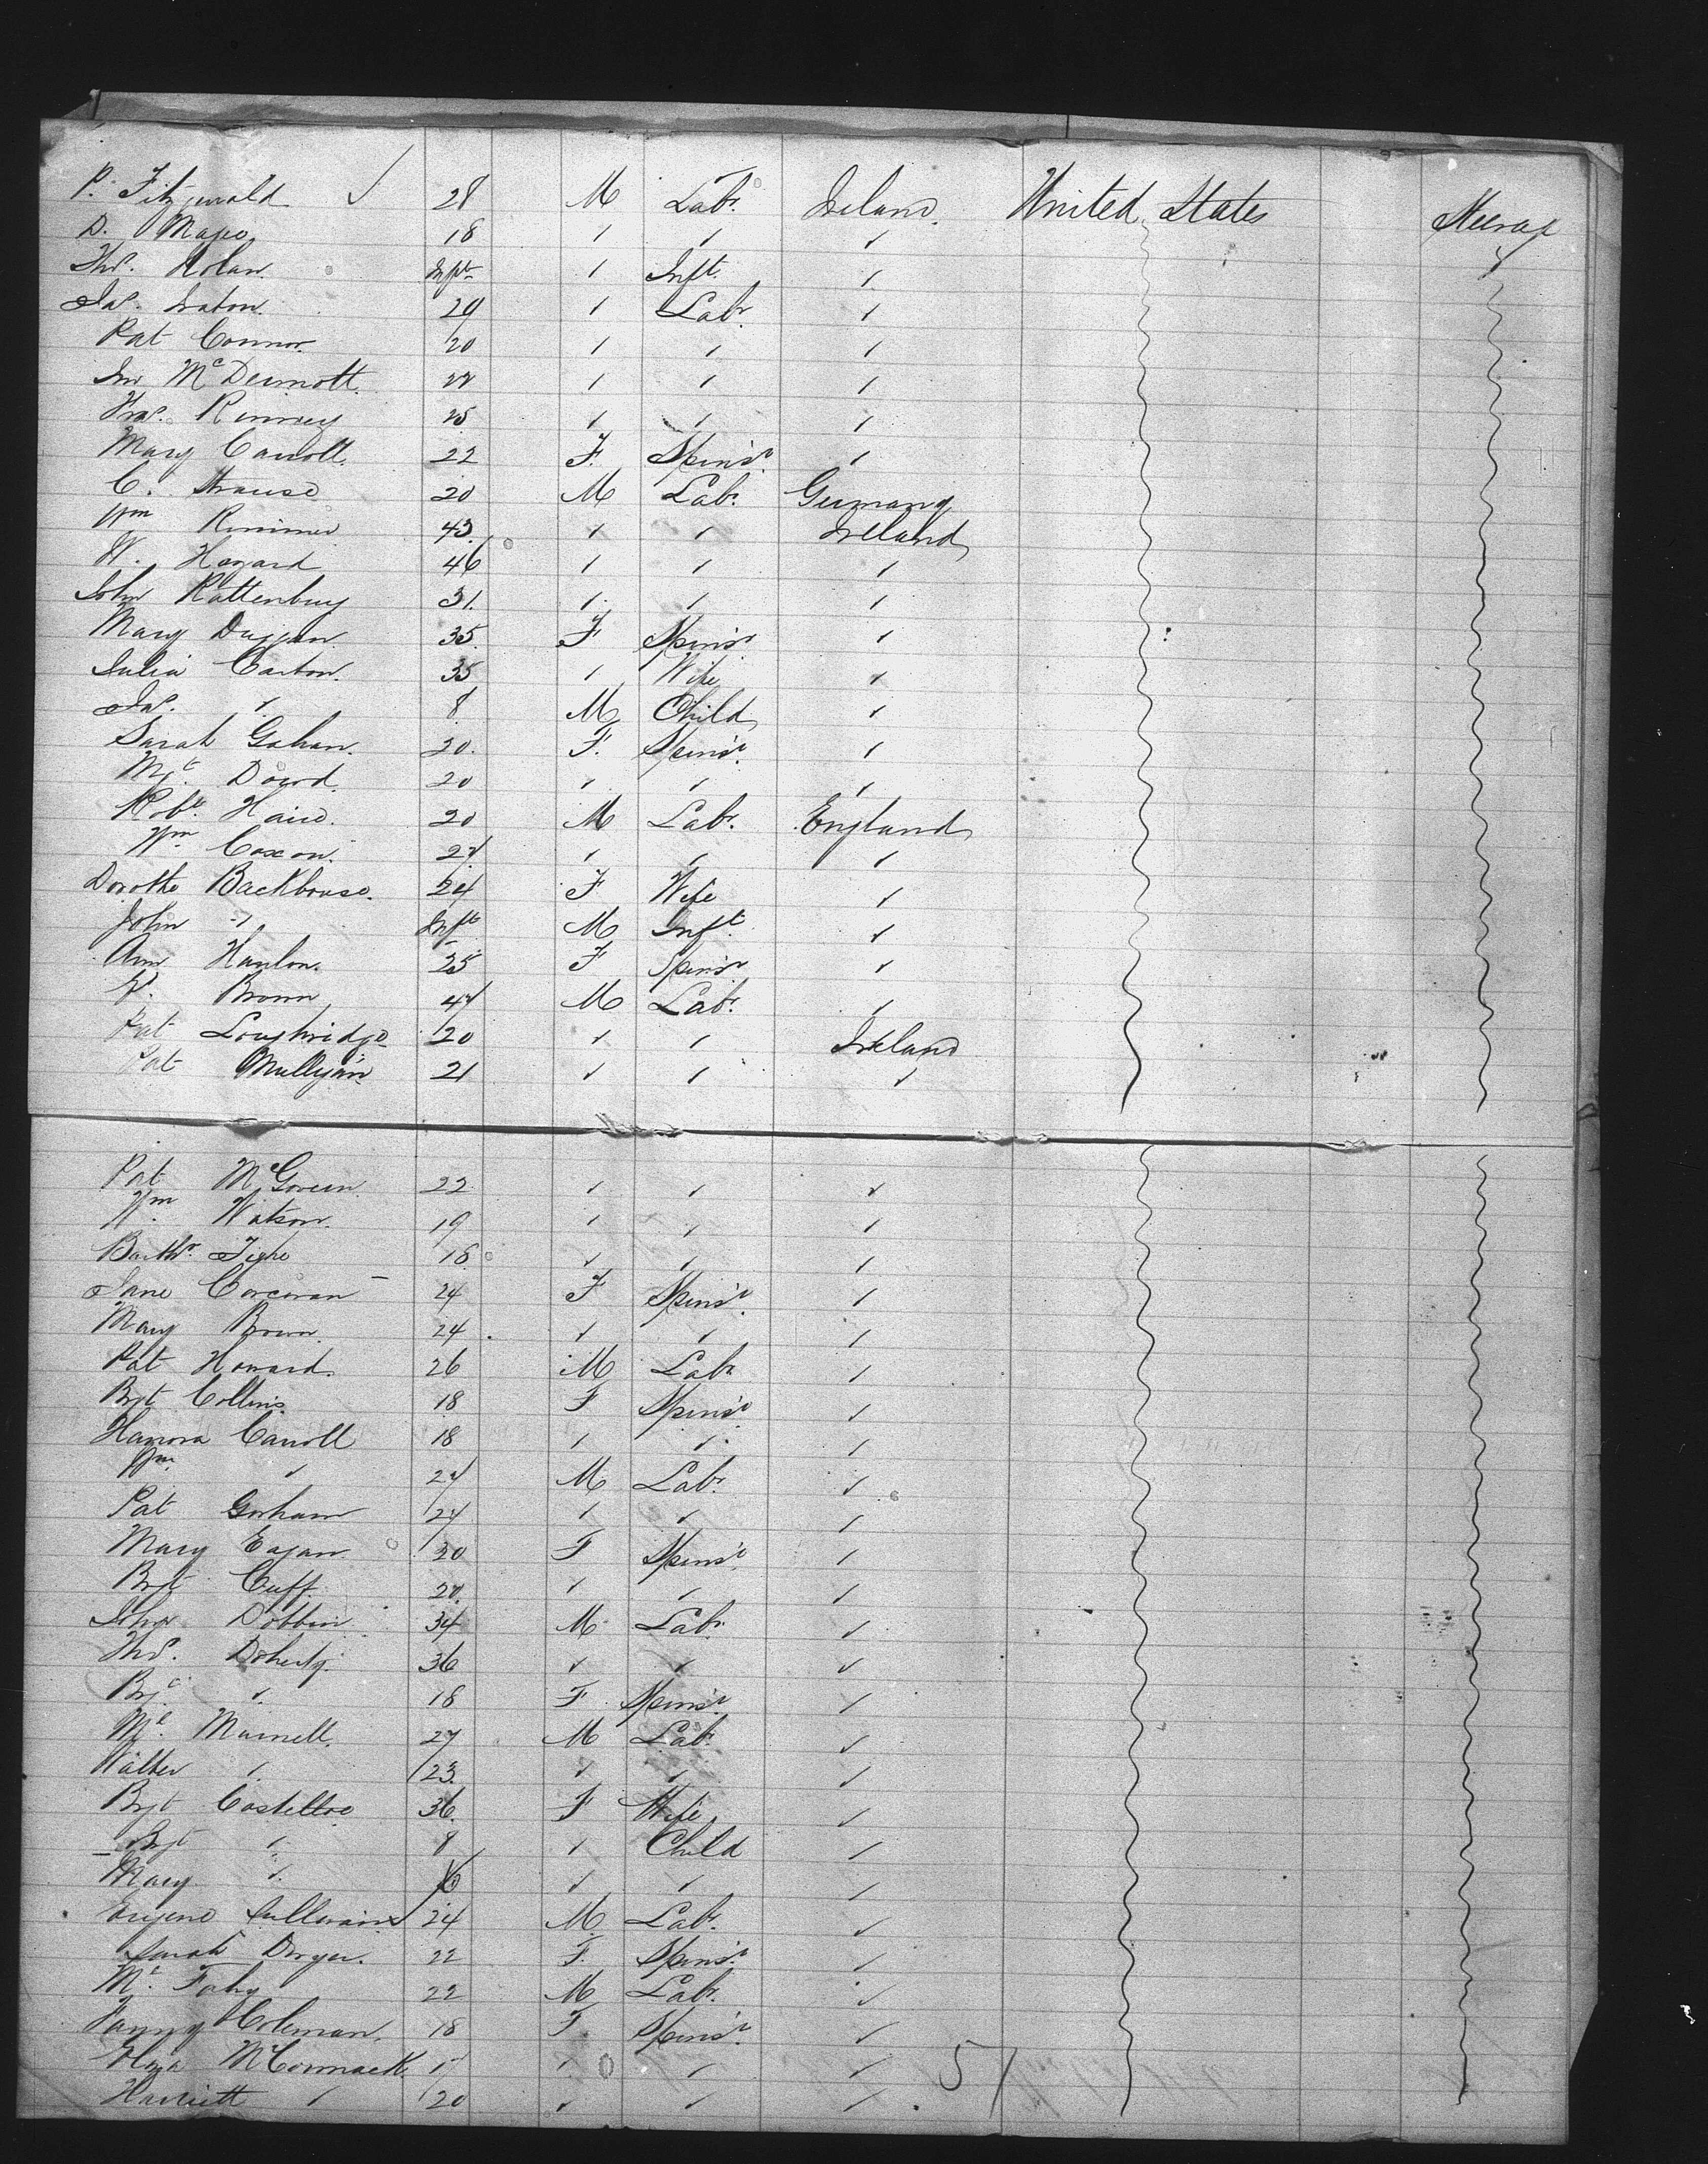 P. Fitzgerald ✓ 28 M Labr. Ireland United States Steerage
D. Mapeo 18 " " "
Thos. Nolan Inft " Inft. "
Jas. Seaton 29 " Labr. "
Pat Connor 20 " " "
Jno McDermott 22 " " "
Thos. Kinney 25 " " "
Mary Carroll 22 F. Spinsr. "
C. Strause 20 M Labr. Germany
Wm Rimmer 43 " " Ireland
W. Hazard 46 " " "
John Rattenbury 31. " " "
Mary Duggan 35. F Spinsr "
Julia Carton 35 " Wife "
Jas. " 8 M Child "
Sarah Gahan. 20. F. Spinsr. "
Mgt. Dowd. 20 " " "
Robt. Haire. 20 M Labr. England
Wm Coxon. 27 " " "
Dorothe Backhouse. 24 F Wife "
John " Inft M Inft. "
Ann Hanlon. 25 F Spinsr "
P. Brown 47 M Labr. "
Pat Loughridge 20 " " Ireland
Pat Mulligan 21 " " "
Pat McGovern 22 " " "
Wm Watson. 19 " " "
Barthw. Tighe 18 " " "
Jane Corcoran 24 F Spinsr. "
Mary Brown 24 " " "
Pat Howard. 26 M Labr "
Bgt Collins 18 F Spinsr. "
Hanora Carroll 18 " " "
Wm " 27 M Labr. "
Pat Gorham 24 " " "
Mary Eagan 20 F Spinsr. "
Bgt Cuff. 20. " " "
John Dobbin 34 M Labr. "
Thos. Doherty. 36 " " "
Bgt " 18 F Spinsr. "
Ml. Murnell. 27 M Labr. "
Walter " 23. " " "
Bgt Costelloe 36. F Wife "
Bgt " 8 " Child "
Mary " 6 " " "
Eugene Sullivan 24 M Labr. "
Sarah Dwyer. 22 F. Spinsr. "
Ml. Fahy 22 M Labr. "
Fanny Coleman. 18 F Spinsr. "
McCormack. 17 " " "
Harriett " 20 " " "
51